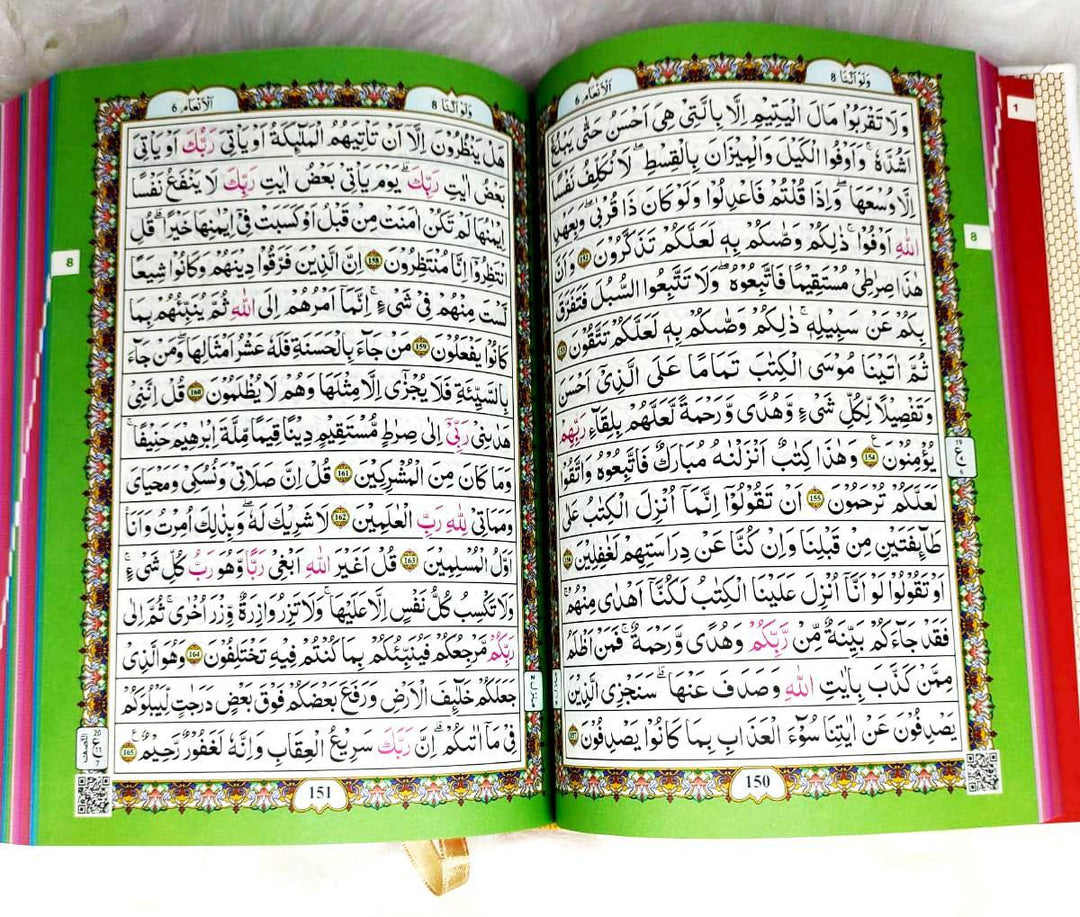 وَلَوْ اَنَّنَا 8
اَلْاَنْعَام 6
وَلَا تَقْرَبُوْا مَالَ الْيَتِيْمِ اِلَّا بِالَّتِيْ هِيَ اَحْسَنُ حَتّٰى يَبْلُغَ
اَشُدَّهٗ ۚ وَاَوْفُوا الْكَيْلَ وَالْمِيْزَانَ بِالْقِسْطِ ۚ لَا نُكَلِّفُ نَفْسًا
اِلَّا وُسْعَهَا ۚ وَاِذَا قُلْتُمْ فَاعْدِلُوْا وَلَوْ كَانَ ذَا قُرْبٰى ۚ وَبِعَهْدِ
اللّٰهِ اَوْفُوْا ۗ ذٰلِكُمْ وَصّٰىكُمْ بِهٖ لَعَلَّكُمْ تَذَكَّرُوْنَ 152 وَاَنَّ
هٰذَا صِرَاطِيْ مُسْتَقِيْمًا فَاتَّبِعُوْهُ ۚ وَلَا تَتَّبِعُوا السُّبُلَ فَتَفَرَّقَ
بِكُمْ عَنْ سَبِيْلِهٖ ۗ ذٰلِكُمْ وَصّٰىكُمْ بِهٖ لَعَلَّكُمْ تَتَّقُوْنَ 153
ثُمَّ اٰتَيْنَا مُوْسَى الْكِتٰبَ تَمَامًا عَلَى الَّذِيْٓ اَحْسَنَ
وَتَفْصِيْلًا لِّكُلِّ شَيْءٍ وَّهُدًى وَّرَحْمَةً لَّعَلَّهُمْ بِلِقَآءِ رَبِّهِمْ
يُؤْمِنُوْنَ 154 وَهٰذَا كِتٰبٌ اَنْزَلْنٰهُ مُبٰرَكٌ فَاتَّبِعُوْهُ وَاتَّقُوْا
لَعَلَّكُمْ تُرْحَمُوْنَ 155 اَنْ تَقُوْلُوْٓا اِنَّمَآ اُنْزِلَ الْكِتٰبُ عَلٰى
طَآئِفَتَيْنِ مِنْ قَبْلِنَا وَاِنْ كُنَّا عَنْ دِرَاسَتِهِمْ لَغٰفِلِيْنَ 156
اَوْ تَقُوْلُوْا لَوْ اَنَّآ اُنْزِلَ عَلَيْنَا الْكِتٰبُ لَكُنَّآ اَهْدٰى مِنْهُمْ ۚ
فَقَدْ جَآءَكُمْ بَيِّنَةٌ مِّنْ رَّبِّكُمْ وَهُدًى وَّرَحْمَةٌ ۚ فَمَنْ اَظْلَمُ
مِمَّنْ كَذَّبَ بِاٰيٰتِ اللّٰهِ وَصَدَفَ عَنْهَا ۗ سَنَجْزِي الَّذِيْنَ
يَصْدِفُوْنَ عَنْ اٰيٰتِنَا سُوْٓءَ الْعَذَابِ بِمَا كَانُوْا يَصْدِفُوْنَ 157
150
1
8
19
ع
وَلَوْ اَنَّنَا 8
اَلْاَنْعَام 6
هَلْ يَنْظُرُوْنَ اِلَّآ اَنْ تَاْتِيَهُمُ الْمَلٰٓئِكَةُ اَوْ يَاْتِيَ رَبُّكَ اَوْ يَاْتِيَ
بَعْضُ اٰيٰتِ رَبِّكَ ۗ يَوْمَ يَاْتِيْ بَعْضُ اٰيٰتِ رَبِّكَ لَا يَنْفَعُ نَفْسًا
اِيْمَانُهَا لَمْ تَكُنْ اٰمَنَتْ مِنْ قَبْلُ اَوْ كَسَبَتْ فِيْٓ اِيْمَانِهَا خَيْرًا ۗ قُلِ
انْتَظِرُوْٓا اِنَّا مُنْتَظِرُوْنَ 158 اِنَّ الَّذِيْنَ فَرَّقُوْا دِيْنَهُمْ وَكَانُوْا شِيَعًا
لَّسْتَ مِنْهُمْ فِيْ شَيْءٍ ۗ اِنَّمَآ اَمْرُهُمْ اِلَى اللّٰهِ ثُمَّ يُنَبِّئُهُمْ بِمَا
كَانُوْا يَفْعَلُوْنَ 159 مَنْ جَآءَ بِالْحَسَنَةِ فَلَهٗ عَشْرُ اَمْثَالِهَا ۚ وَمَنْ جَآءَ
بِالسَّيِّئَةِ فَلَا يُجْزٰٓى اِلَّا مِثْلَهَا وَهُمْ لَا يُظْلَمُوْنَ 160 قُلْ اِنَّنِيْ
هَدٰىنِيْ رَبِّيْٓ اِلٰى صِرَاطٍ مُّسْتَقِيْمٍ ۚ دِيْنًا قِيَمًا مِّلَّةَ اِبْرٰهِيْمَ حَنِيْفًا ۚ
وَمَا كَانَ مِنَ الْمُشْرِكِيْنَ 161 قُلْ اِنَّ صَلَاتِيْ وَنُسُكِيْ وَمَحْيَايَ
وَمَمَاتِيْ لِلّٰهِ رَبِّ الْعٰلَمِيْنَ 162 لَا شَرِيْكَ لَهٗ ۚ وَبِذٰلِكَ اُمِرْتُ وَاَنَا
اَوَّلُ الْمُسْلِمِيْنَ 163 قُلْ اَغَيْرَ اللّٰهِ اَبْغِيْ رَبًّا وَّهُوَ رَبُّ كُلِّ شَيْءٍ ۗ
وَلَا تَكْسِبُ كُلُّ نَفْسٍ اِلَّا عَلَيْهَا ۚ وَلَا تَزِرُ وَازِرَةٌ وِّزْرَ اُخْرٰى ۚ ثُمَّ اِلٰى
رَبِّكُمْ مَّرْجِعُكُمْ فَيُنَبِّئُكُمْ بِمَا كُنْتُمْ فِيْهِ تَخْتَلِفُوْنَ 164 وَهُوَ الَّذِيْ
جَعَلَكُمْ خَلٰٓئِفَ الْاَرْضِ وَرَفَعَ بَعْضَكُمْ فَوْقَ بَعْضٍ دَرَجٰتٍ لِّيَبْلُوَكُمْ
فِيْ مَآ اٰتٰىكُمْ ۗ اِنَّ رَبَّكَ سَرِيْعُ الْعِقَابِ وَاِنَّهٗ لَغَفُوْرٌ رَّحِيْمٌ 165
151
8
20
ع
النصف
منزل ٢